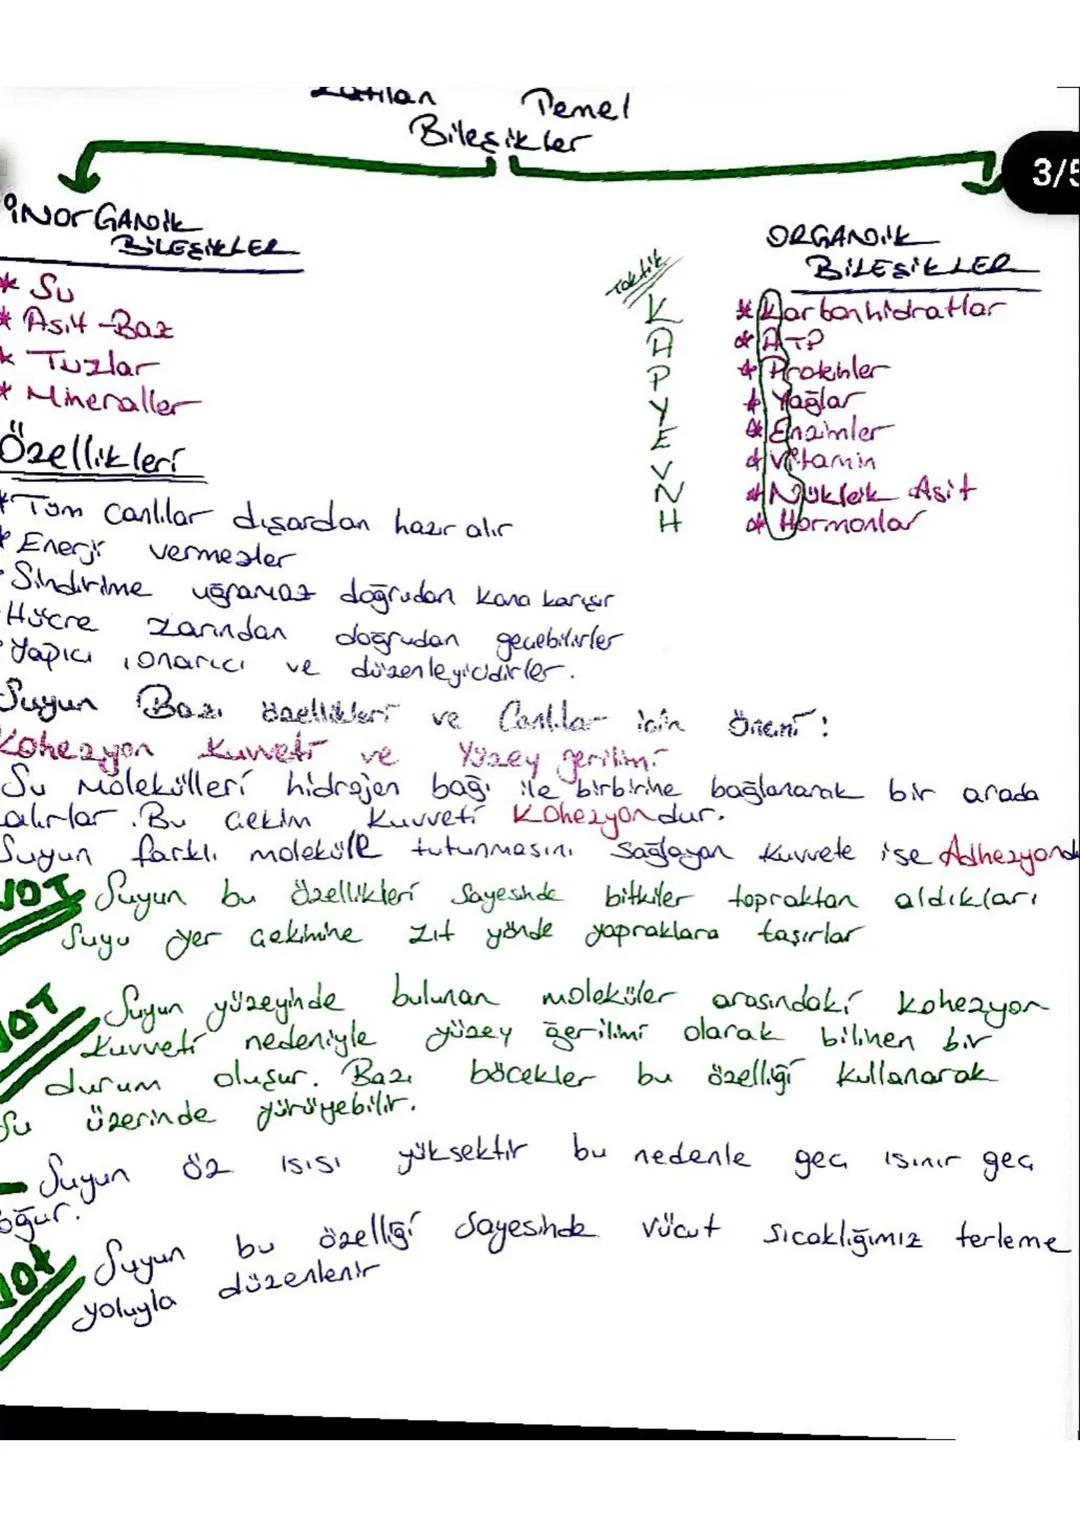 Temel
Bileşikler
3/5
iNorGANik
BiLEŞiKLER
* Su
* Asit-Baz
* Tuzlar
* Mineraller
Taktik
K
A
P
Y
E
V
N
H
ORGANiK
BiLEŞiKLER
* Karbonhidratlar
* ATP
* Proteinler
* Yağlar
* Enzimler
* Vitamin
* Nükleik Asit
* Hormonlar
Özellikleri
* Tüm canlılar dışardan hazır alır
* Enerji vermezler
Sindirime uğramaz doğrudan kana karışır
Hücre zarından doğrudan geçebilirler
Yapıcı, onarıcı ve düzenleyicidirler.
Suyun Bazı özellikleri ve Canlılar için önemi:
Kohezyon kuvveti ve Yüzey gerilimi
Su molekülleri hidrojen bağı ile birbirine bağlanarak bir arada
kalırlar. Bu çekim kuvveti Kohezyondur.
Suyun farklı moleküle tutunmasını sağlayan kuvvete ise Adhezyond
NOT Suyun bu özellikleri sayesinde bitkiler topraktan aldıkları
suyu yer çekimine zıt yönde yapraklara taşırlar
NOT Suyun yüzeyinde bulunan moleküler arasındaki kohezyon
kuvveti nedeniyle yüzey gerilimi olarak bilinen bir
durum oluşur. Bazı böcekler bu özelliği kullanarak
Su üzerinde yürüyebilir.
- Suyun öz ısısı yüksektir bu nedenle geç ısınır geç
soğur.
Not Suyun bu özelliği sayesinde vücut sıcaklığımız terleme
yoluyla düzenlenir